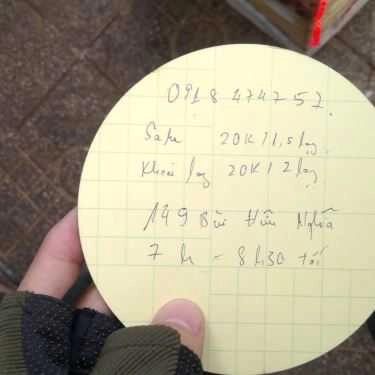 0918 474757.
Sake 20K / 1,5 lạng
Khoai lang 20K / 2 lạng
149 Bùi Hữu Nghĩa
7h - 8h30 tối